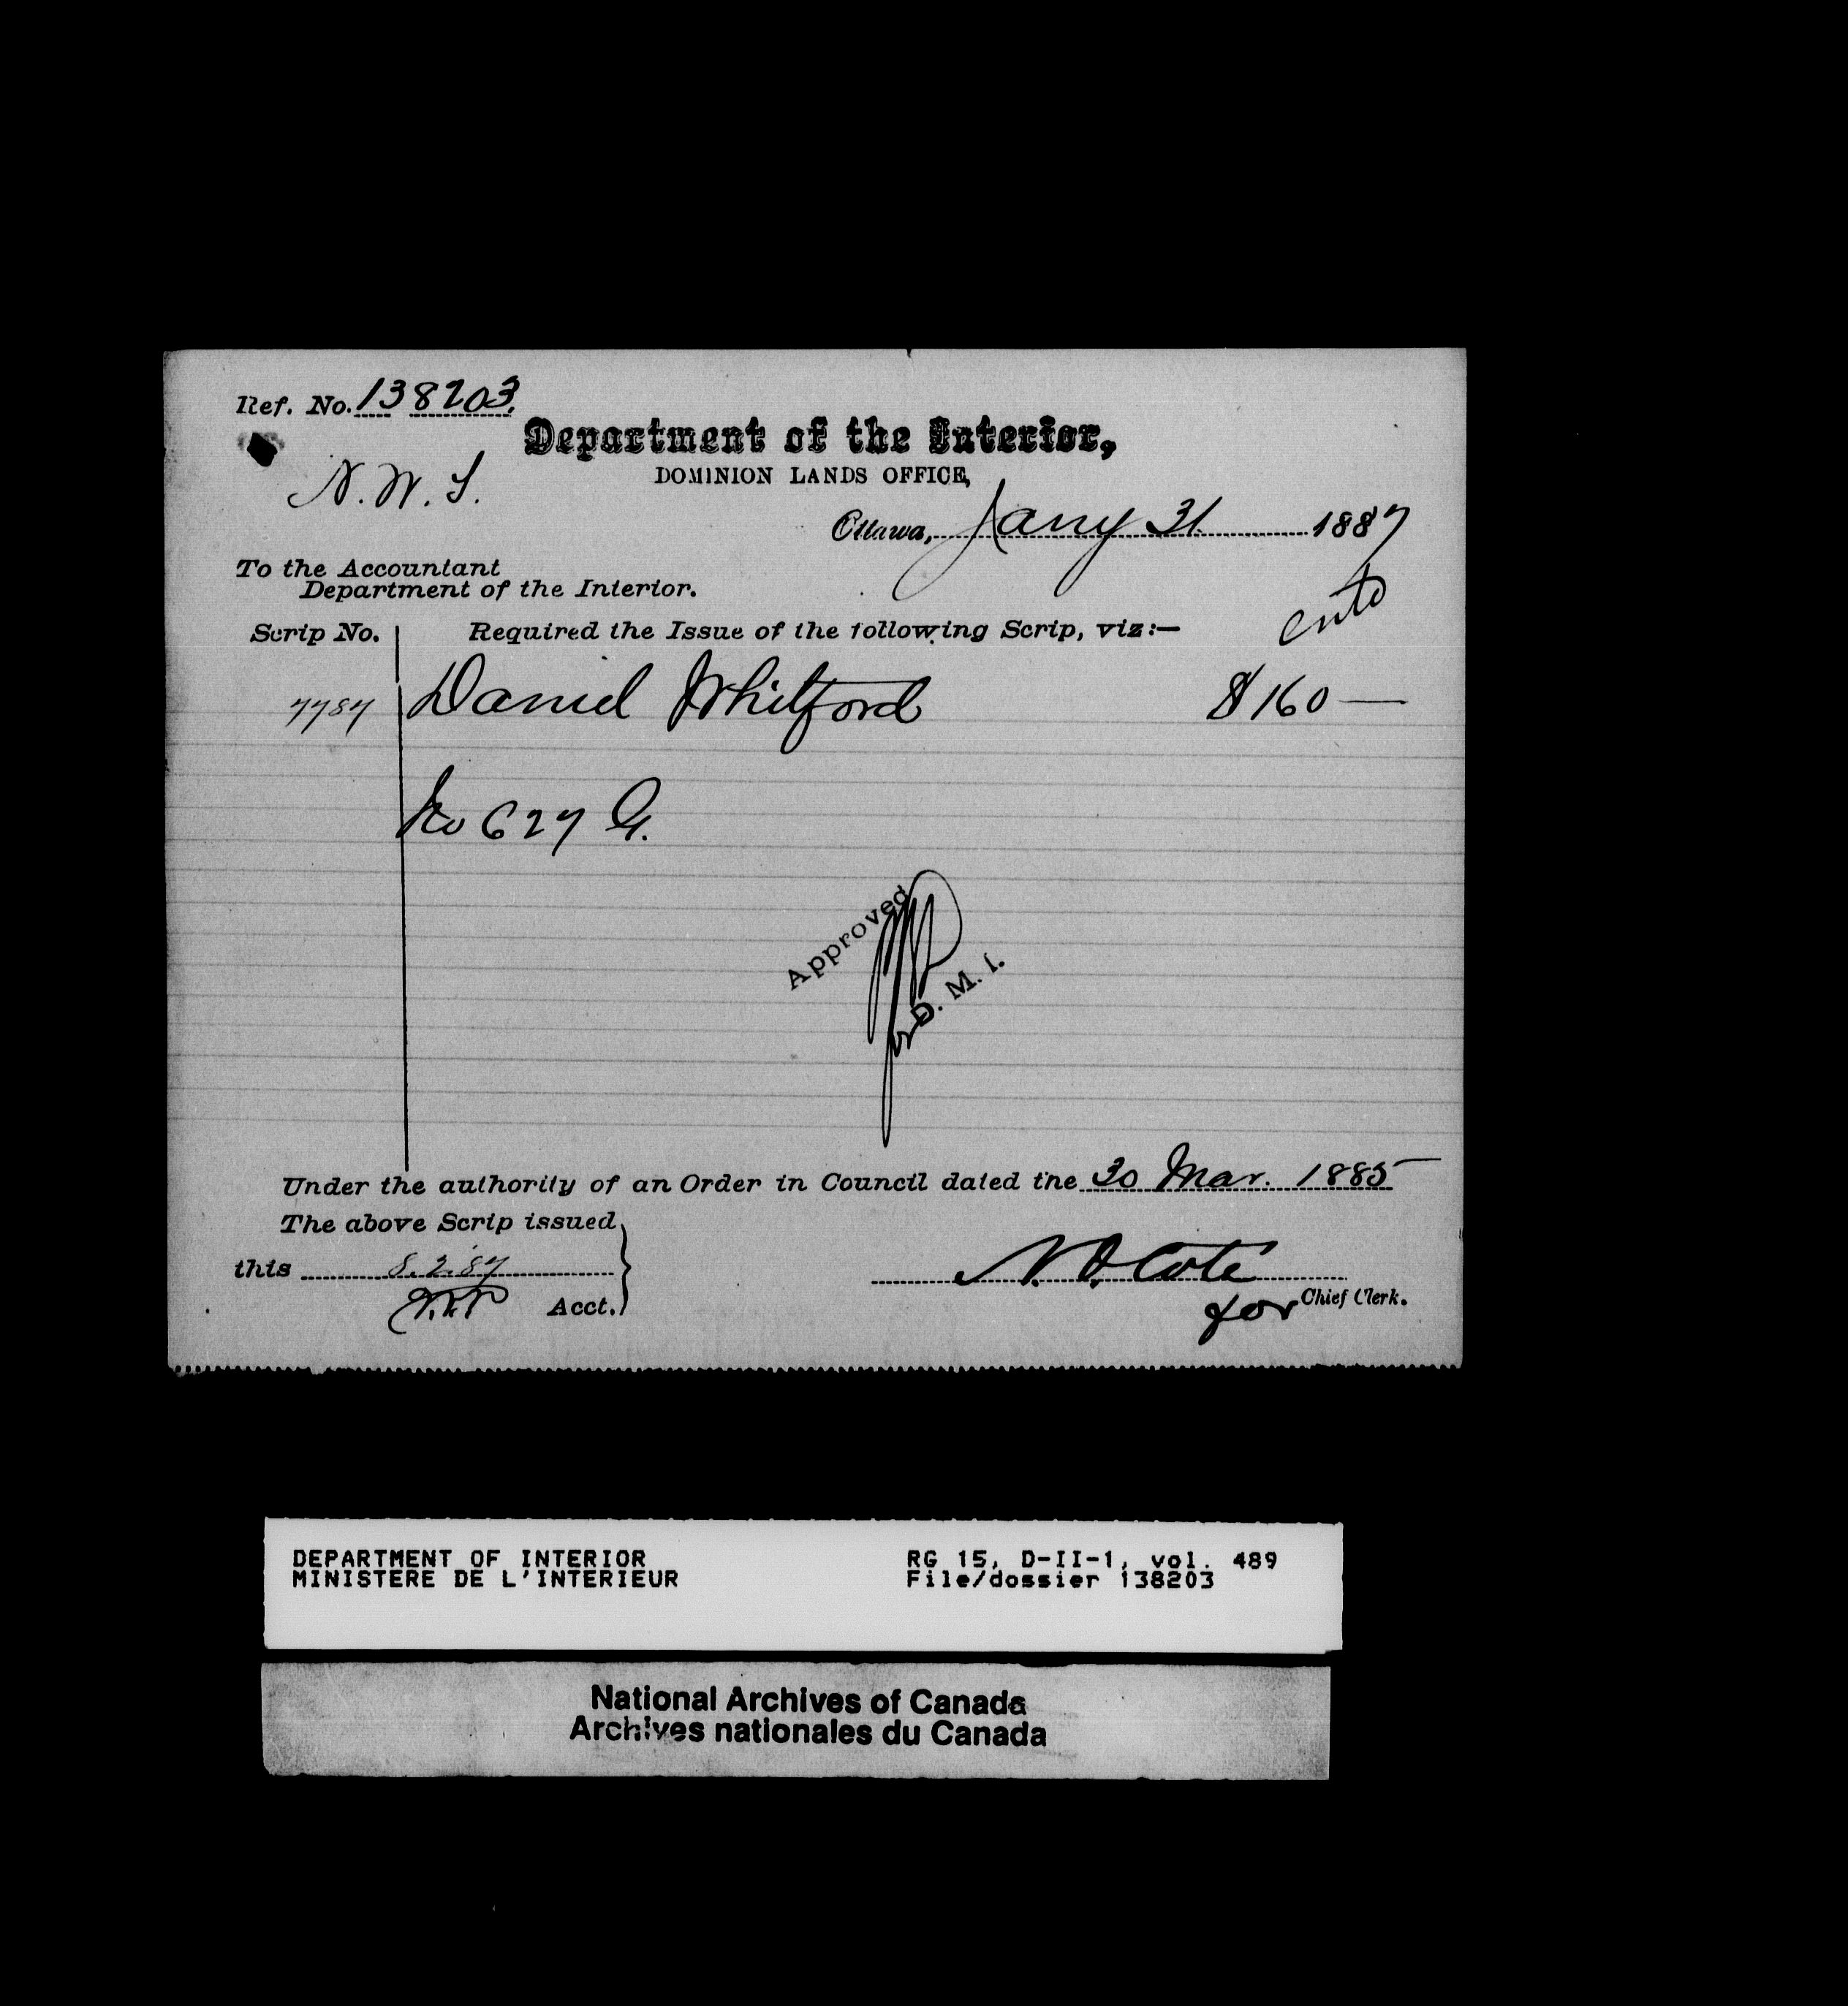 Ref. No. 138203
Department of the Interior,
DOMINION LANDS OFFICE,
N. W. T.
Ottawa, Jany 31 1887
To the Accountant
Department of the Interior.
Scrip No. Required the Issue of the following Scrip, viz:—
7787 Daniel Whitford $160 —
No 627 G.
Approved
D. M. I.
Under the authority of an Order in Council dated the 30 Mar. 1885
The above Scrip issued
this 8.2.87
Acct.
N. O. Cote
for Chief Clerk.
DEPARTMENT OF INTERIOR
MINISTERE DE L'INTERIEUR
RG 15, D-II-1, vol. 489
File/dossier 138203
National Archives of Canada
Archives nationales du Canada